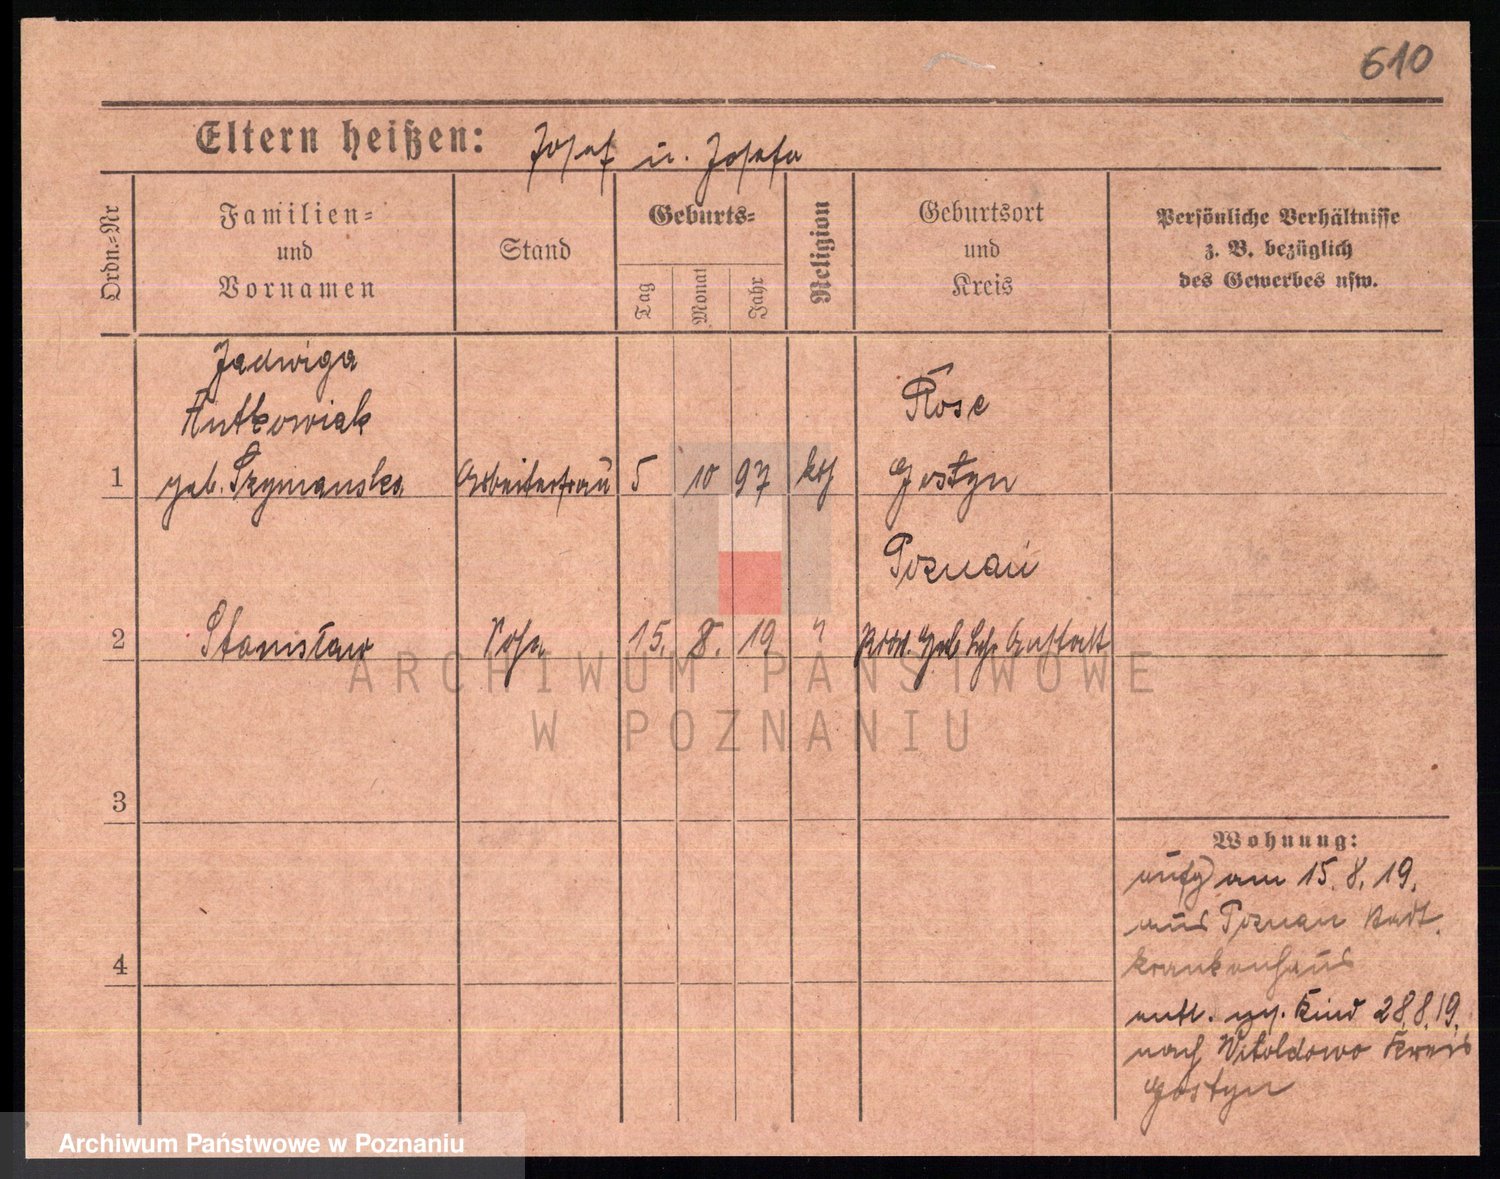 610
Eltern heißen: Josef u. Josefa
Ordn.=Nr
Familien=
und
Vornamen
Stand
Geburts=
Tag
Monat
Jahr
Religion
Geburtsort
und
Kreis
Persönliche Verhältnisse
z. B. bezüglich
des Gewerbes usw.
Jadwiga
Antkowiak
1 geb. Szymanska Arbeiterfrau 5 10 97 kth Gostyn
Poznań
2 Stanisław Sohn 15. 8. 19 " Prov. Geb Anstalt
ARCHIWUM PAŃSTWOWE
W POZNANIU
3
4
Wohnung:
aufg am 15. 8. 19.
aus Poznan Stadt.
krankenhaus
entl. Kind 28.8.19.
nach Witoldowo Kreis
Gostyn
Archiwum Państwowe w Poznaniu